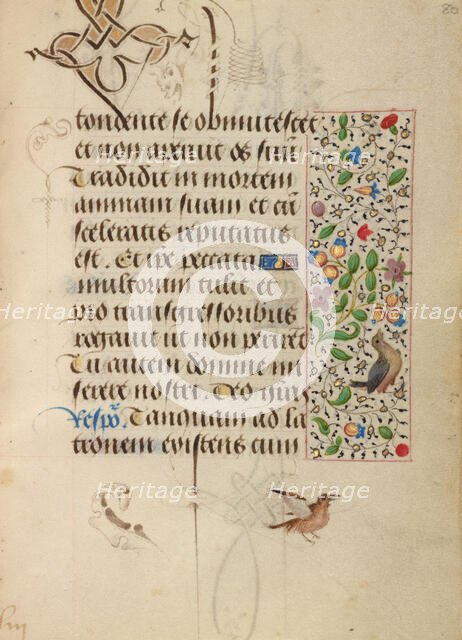 80
tondente se obmutescet
et non aperuit os suū
Tradidit in mortem
animam suam et cū
sceleratis reputatus
est. Et ipe peccata
multorum tulit et
pro transgressoribus
rogavit ut non periret
Tu autem domine mi
serere nostri. Deo grās
Respō. Tanquam ad la
tronem existens cum
Heritage Heritage Heritage
Heritage Heritage Heritage
Heritage Heritage